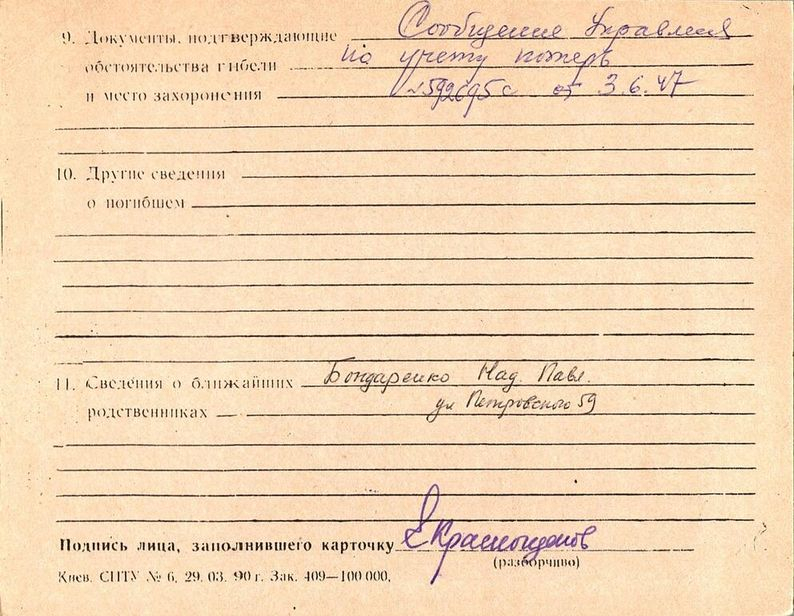 9. Документы, подтверждающие Сообщение Управлен
обстоятельства гибели по учету потерь
и место захоронения №592695с от 3.6.47
10. Другие сведения
о погибшем
11. Сведения о ближайших Бондаренко Над. Павл.
родственниках ул Петровского 59
Подпись лица, заполнившего карточку
(разборчиво)
Киев. СПТУ № 6, 29. 03. 90 г. Зак. 409—100 000.